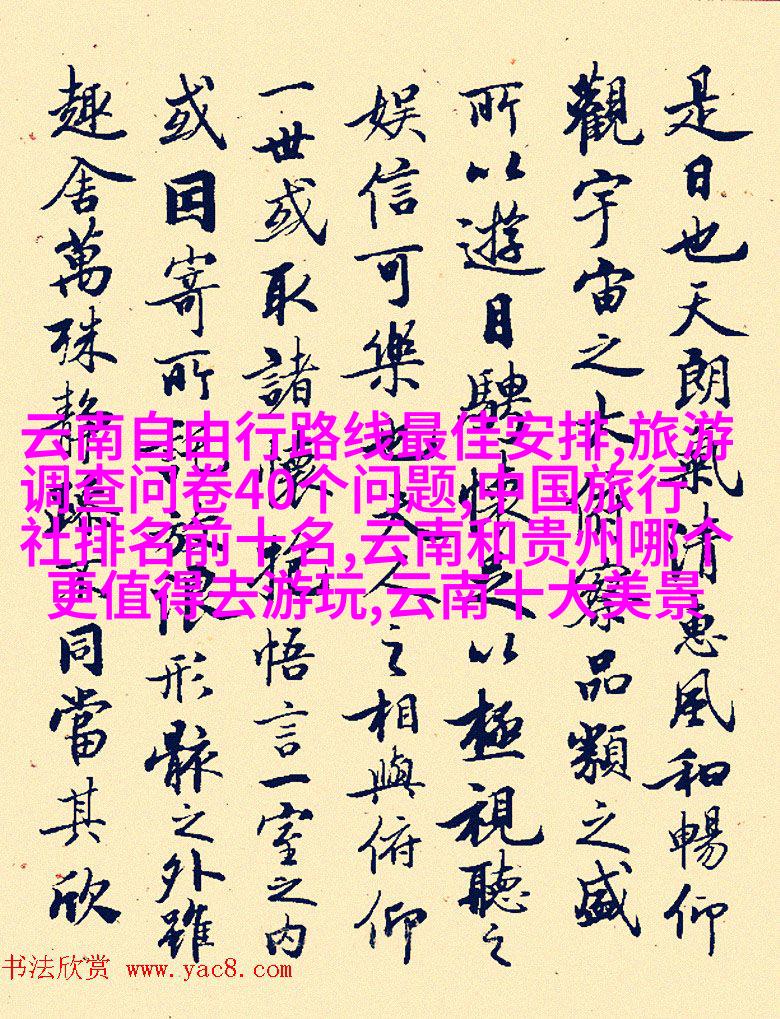 是日也天朗氣清惠風和暢仰
觀宇宙之大俯察品類之盛
所以遊目騁懷足以極視聽之
娛信可樂也夫人之相與俯仰
一世或取諸懷抱悟言一室之內
或因寄所託放浪形骸之外雖
趣舍萬殊靜躁不同當其欣
云南自由行路线最佳安排,旅游
调查问卷40个问题,中国旅行
社排名前十名,云南和贵州哪个
更值得去游玩,云南十大美景
书法欣赏 www.yac8.com